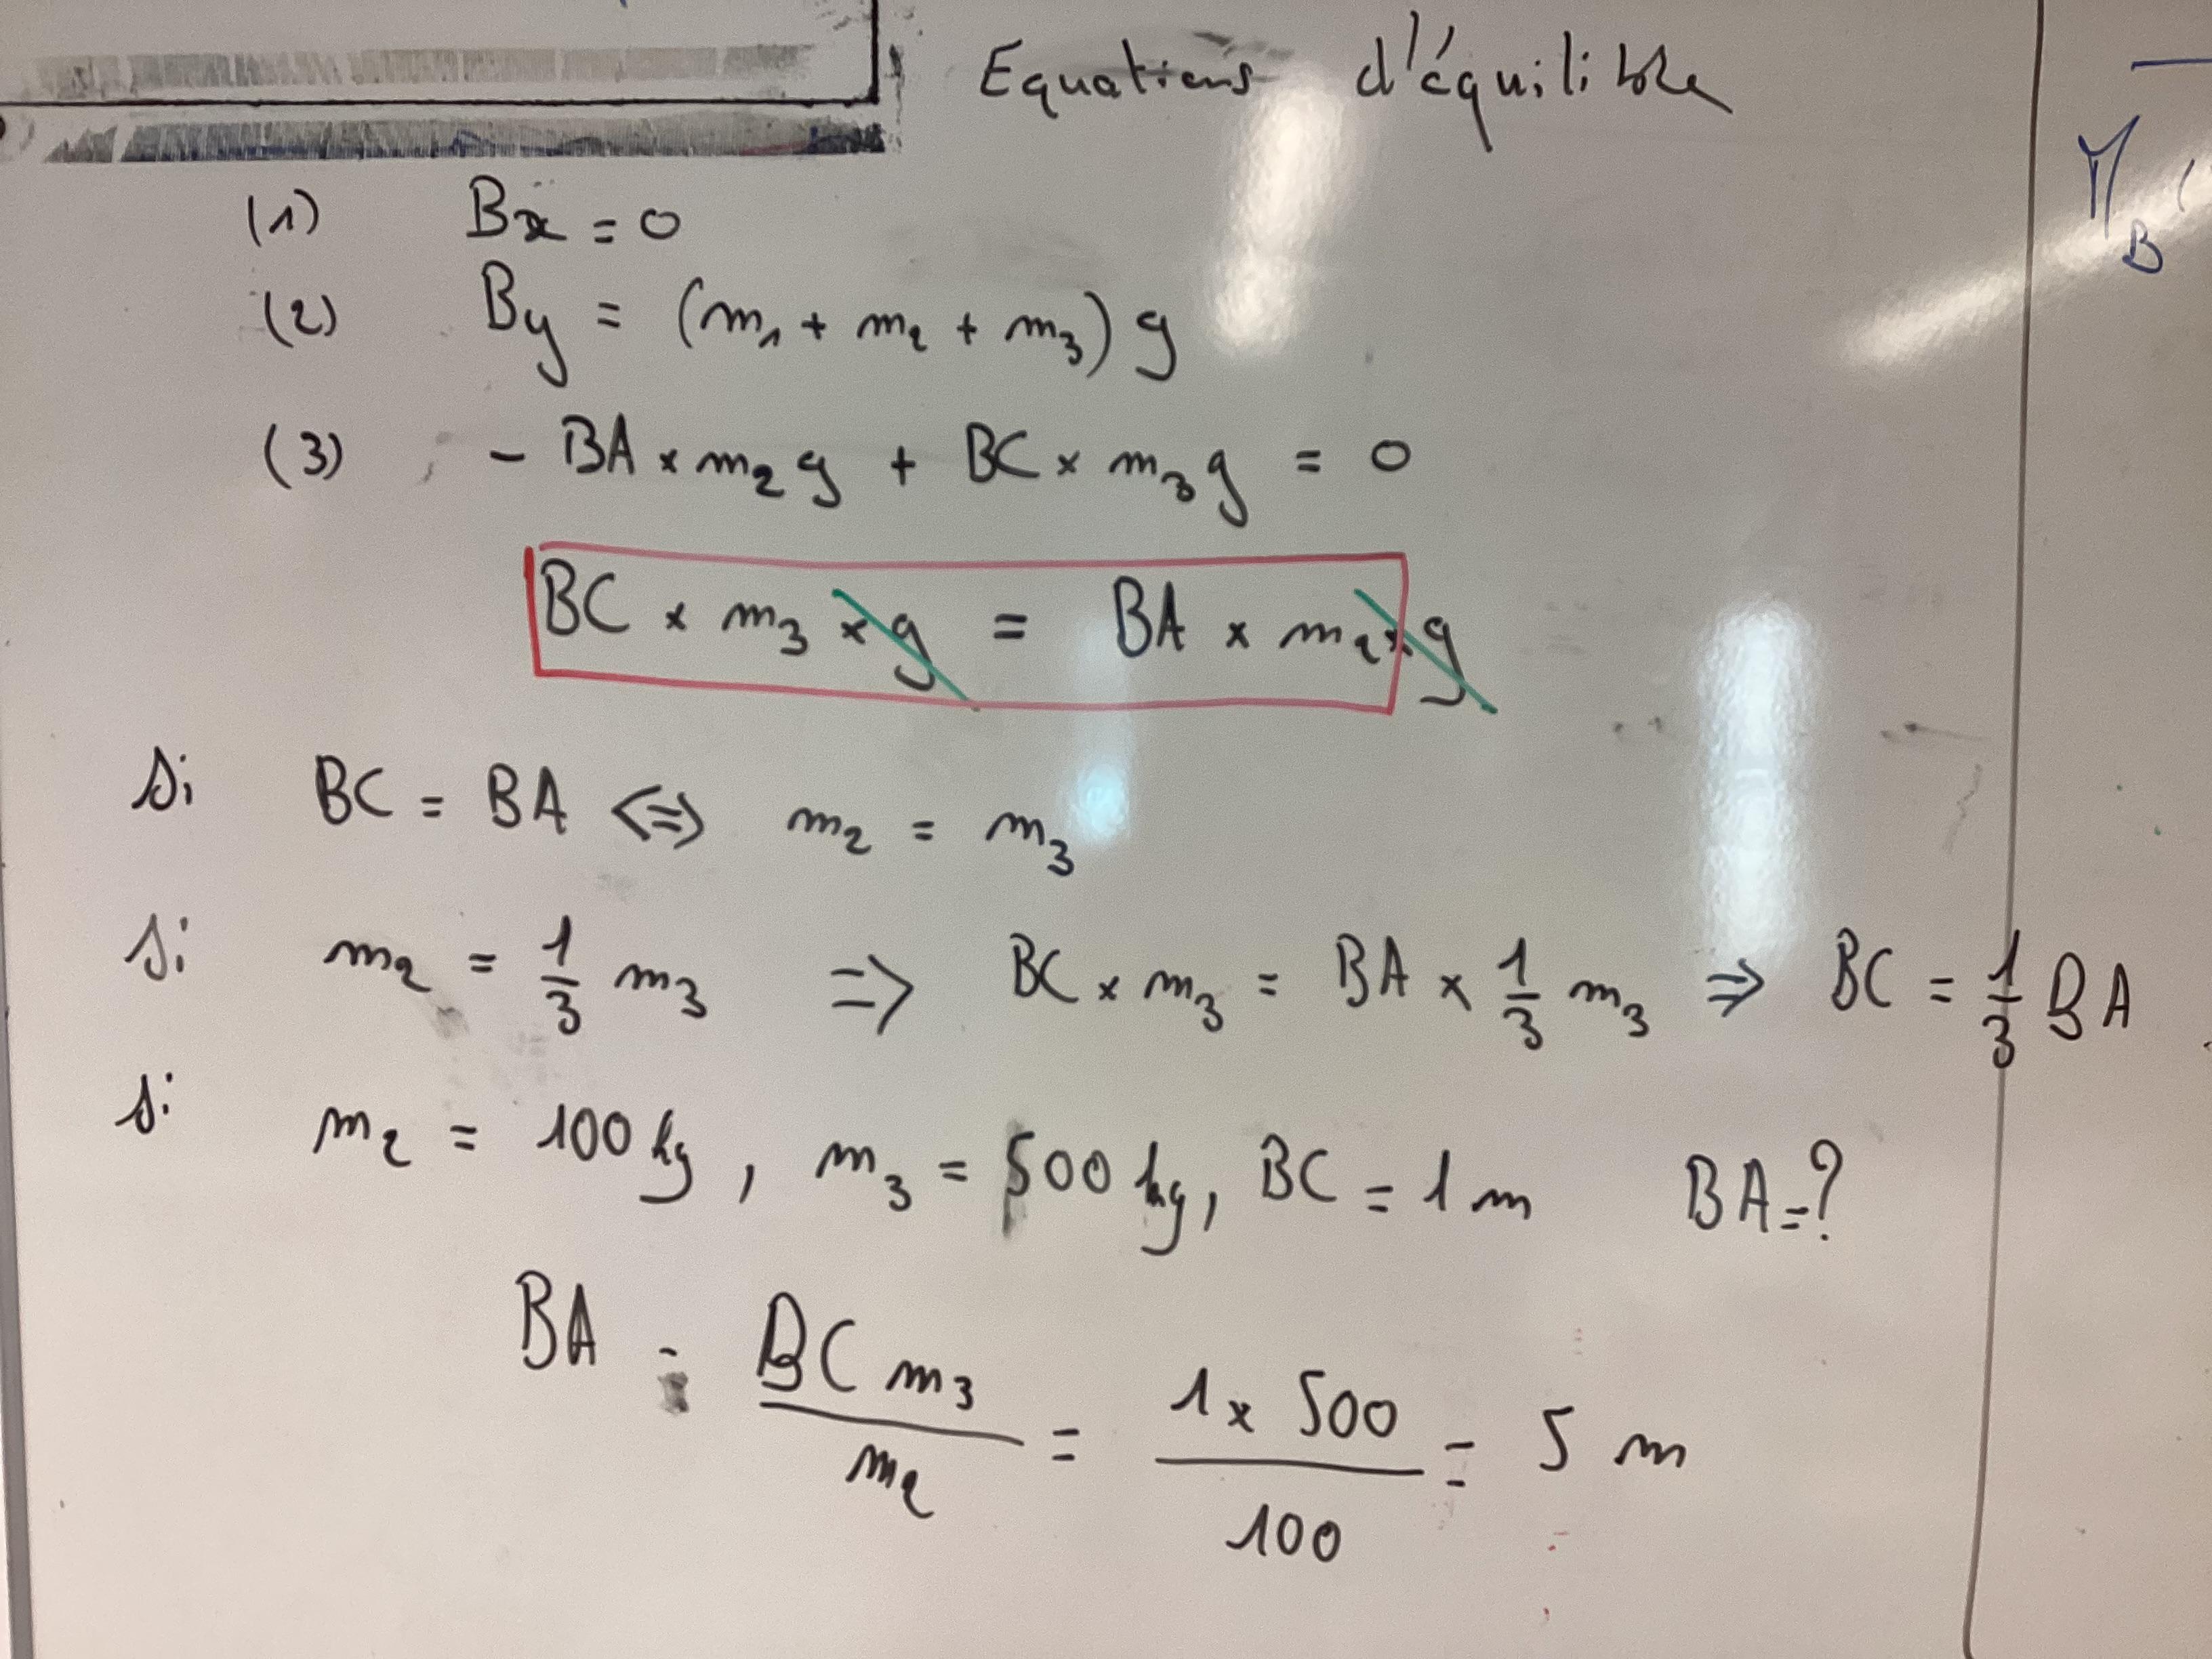 Equations d'équilibre
(1) Bx = 0
(2) By = (m₁ + m₂ + m₃) g
(3) - BA × m₂ g + BC × m₃ g = 0
BC × m₃ × g = BA × m₂ × g
Si BC = BA <=> m₂ = m₃
Si m₂ = 1/3 m₃ => BC × m₃ = BA × 1/3 m₃ => BC = 1/3 BA
Si m₂ = 100 kg, m₃ = 500 kg, BC = 1 m BA = ?
BA = BC m₃ / m₂ = 1 × 500 / 100 = 5 m
B